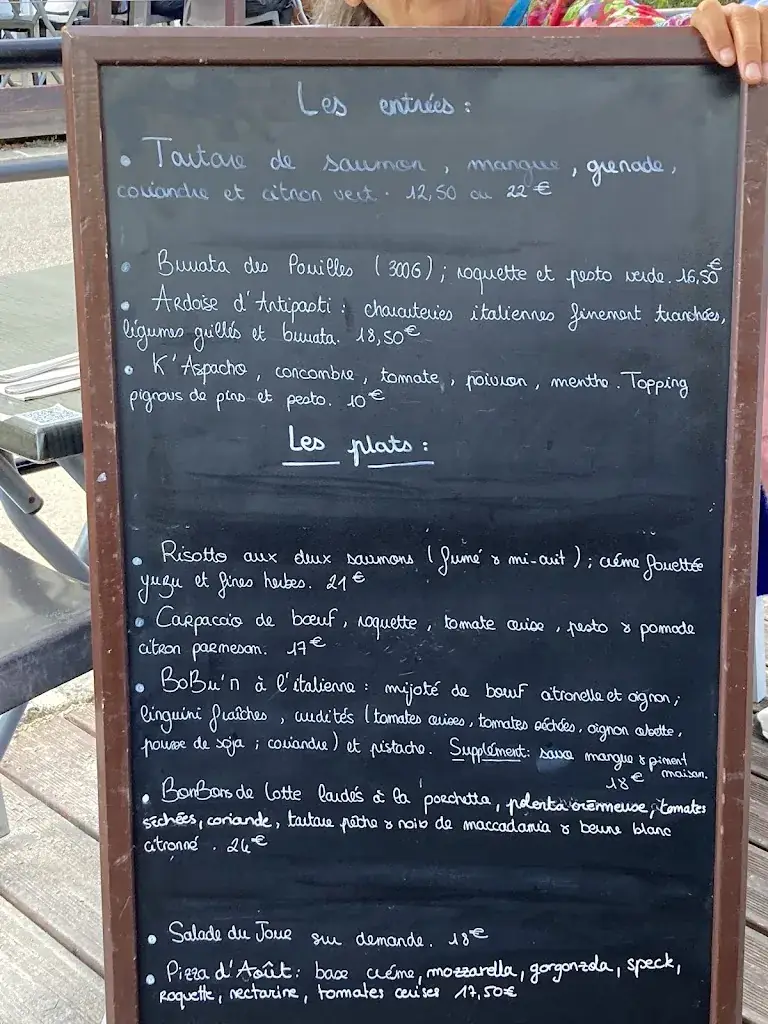 Les entrées :
• Tartare de saumon, mangue, grenade,
coriandre et citron vert. 12,50 ou 22€
• Burrata des Pouilles (300G) ; roquette et pesto verde. 16,50€
• Ardoise d'Antipasti : charcuteries italiennes finement tranchées,
légumes grillés et burrata. 18,50€
• K'Aspacho, concombre, tomate, poivron, menthe. Topping
pignous de pins et pesto. 10€
Les plats :
• Risotto aux deux saumons (fumé & mi-cuit) ; crème fouettée
yuzu et fines herbes. 21€
• Carpaccio de bœuf, roquette, tomate cerise, pesto & pomade
citron parmesan. 17€
• BoBu'n à l'italienne : mijoté de bœuf citronelle et oignon ;
linguini fraîches, crudités (tomates cerises, tomates séchées, oignon cebette,
pousse de soja ; coriandre) et pistache. Supplément : sauce mangue & piment
maison.
18€
• BonBons de Lotte lardés à la porchetta, polenta crèmeuse, tomates
séchées, coriande, tartare pêche & noix de maccadamia & beurre blanc
citronné. 24€
• Salade du Jour sur demande. 18€
• Pizza d'Août : base crème, mozzarella, gorgonzola, speck,
Roquette, nectarine, tomates cerises 17,50€